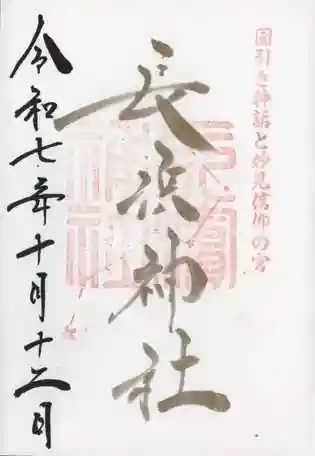 国引き神話と妙見信仰の宮
長浜神社
令和七年十月十二日